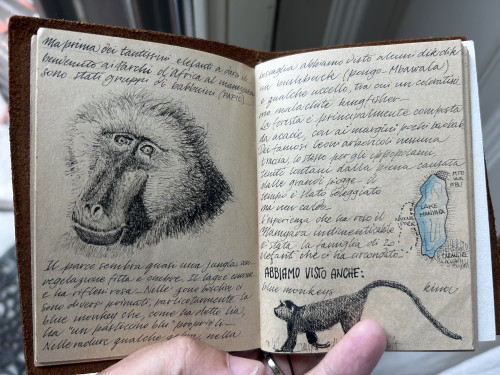 Ma prima dei tantissimi elefanti a dare il
benvenuto ai Parchi d'Africa al
sono stati gruppi di babbuini
Il parco sembra quasi una jungla, con
vegetazione fitta e Il lago
e ha riflessi rosa. Nelle
sono diversi primati, particolarmente la
blue monkey che, come ha detto lia,
ha "un pasticcino blu" proprio lì.
Nelle radure qualche nella
boscaglia abbiamo visto alcuni dik dik
un bushbuck (pongo - Mbawala)
e qualche uccello, tra cui un coloratissi
mo malachite kingfisher.
La foresta è principalmente composta
da acacie, con ai margini pochi baobab
Dei famosi leoni arboricoli nessuna
traccia, lo stesso per gli ippopotami,
tenuti lontani dalla piena causata
dalle grandi piogge. Il
tempo è stato soleggiato
ma non caldo.
L'esperienza che ha reso il
Manyara indimenticabile
è stata la famiglia di 20
elefanti che ci ha circondato.
MTO
WA
MBU
LAKE
MANYARA
ABBIAMO VISTO ANCHE:
blue monkeys